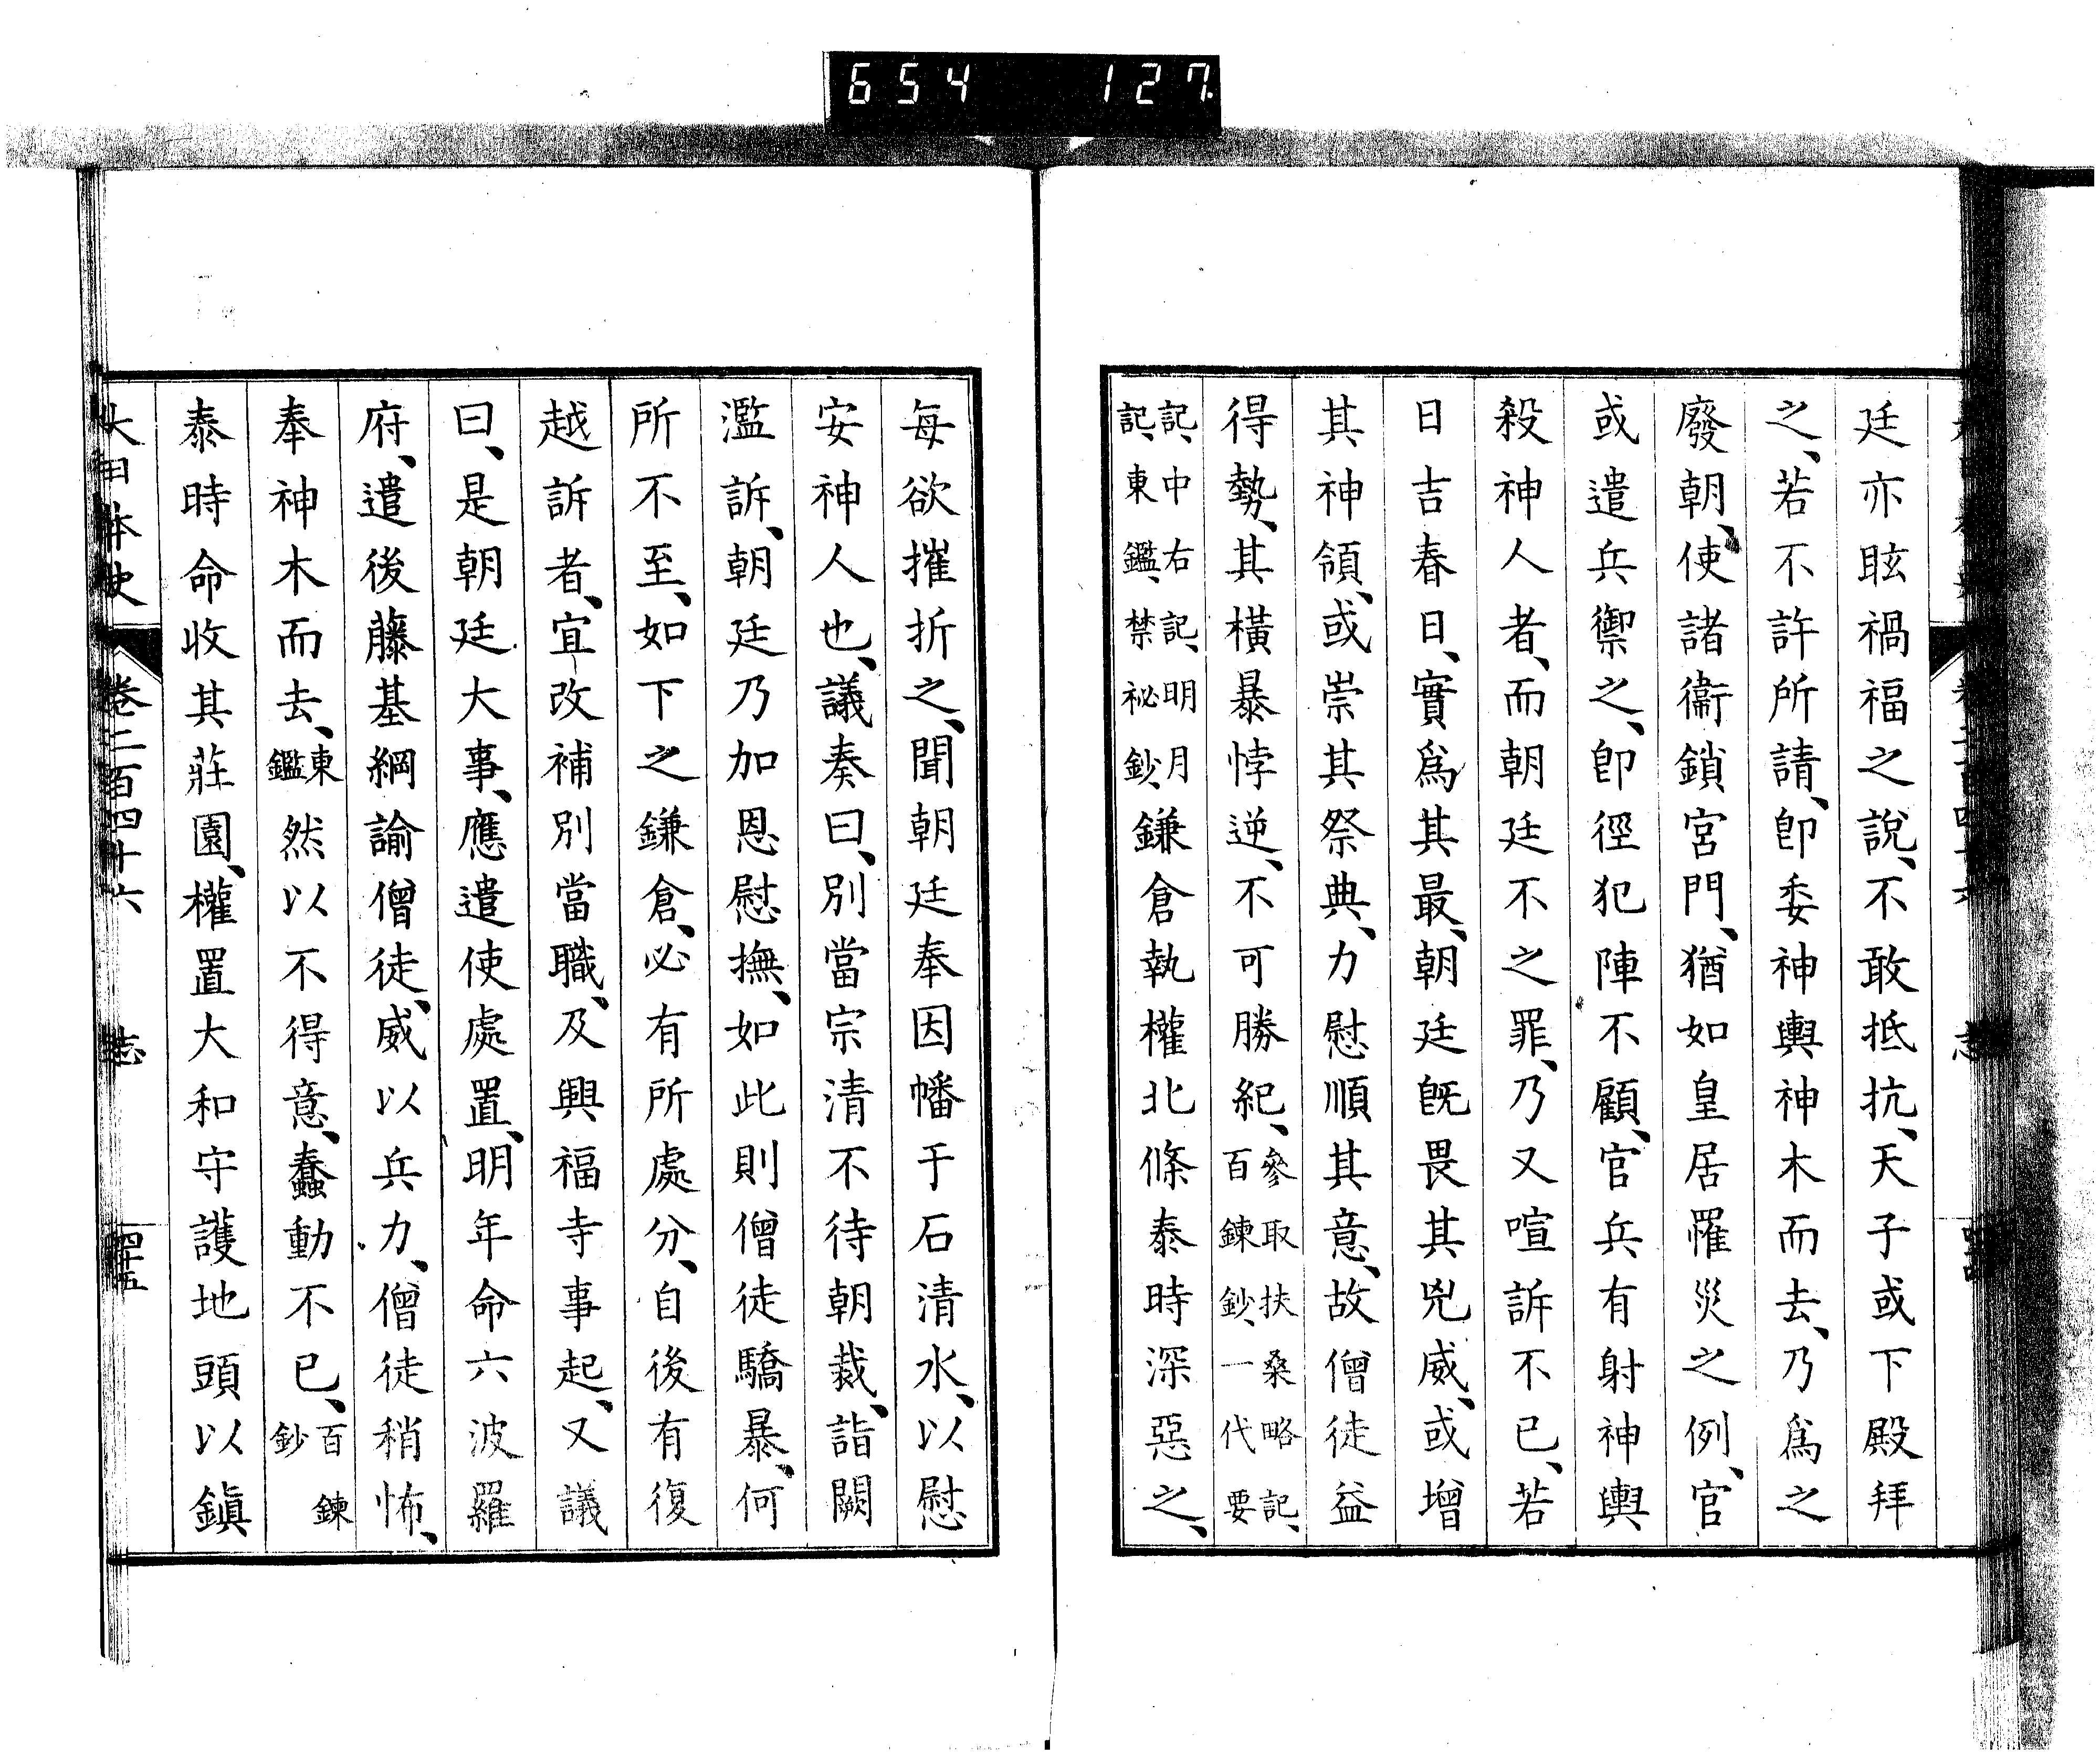 654 127
廷亦眩禍福之說、不敢抵抗、天子或下殿拜
之、若不許所請、卽委神輿神木而去、乃爲之
廢朝、使諸衞鎖宮門、猶如皇居罹災之例、官
或遣兵禦之、卽徑犯陣不顧、官兵有射神輿
殺神人者、而朝廷不之罪、乃又喧訴不已、若
日吉春日、實爲其最、朝廷旣畏其兇威、或增
其神領、或崇其祭典、力慰順其意、故僧徒益
得勢、其橫暴悖逆、不可勝紀、參取扶桑略記、百鍊鈔、一代要
記、中右記、明月記、東鑑、禁祕鈔、鎌倉執權北條泰時深惡之、
每欲摧折之、聞朝廷奉因幡于石清水、以慰
安神人也、議奏曰、別當宗清不待朝裁、詣闕
濫訴、朝廷乃加恩慰撫、如此則僧徒驕暴、何
所不至、如下之鎌倉、必有所處分、自後有復
越訴者、宜改補別當職、及興福寺事起、又議
曰、是朝廷大事、應遣使處置、明年命六波羅
府、遣後藤基綱諭僧徒、威以兵力、僧徒稍怖、
奉神木而去、東鑑然以不得意、蠢動不已、百鍊鈔
泰時命收其莊園、權置大和守護地頭以鎭
大日本史 卷二百四十六 志 四十五